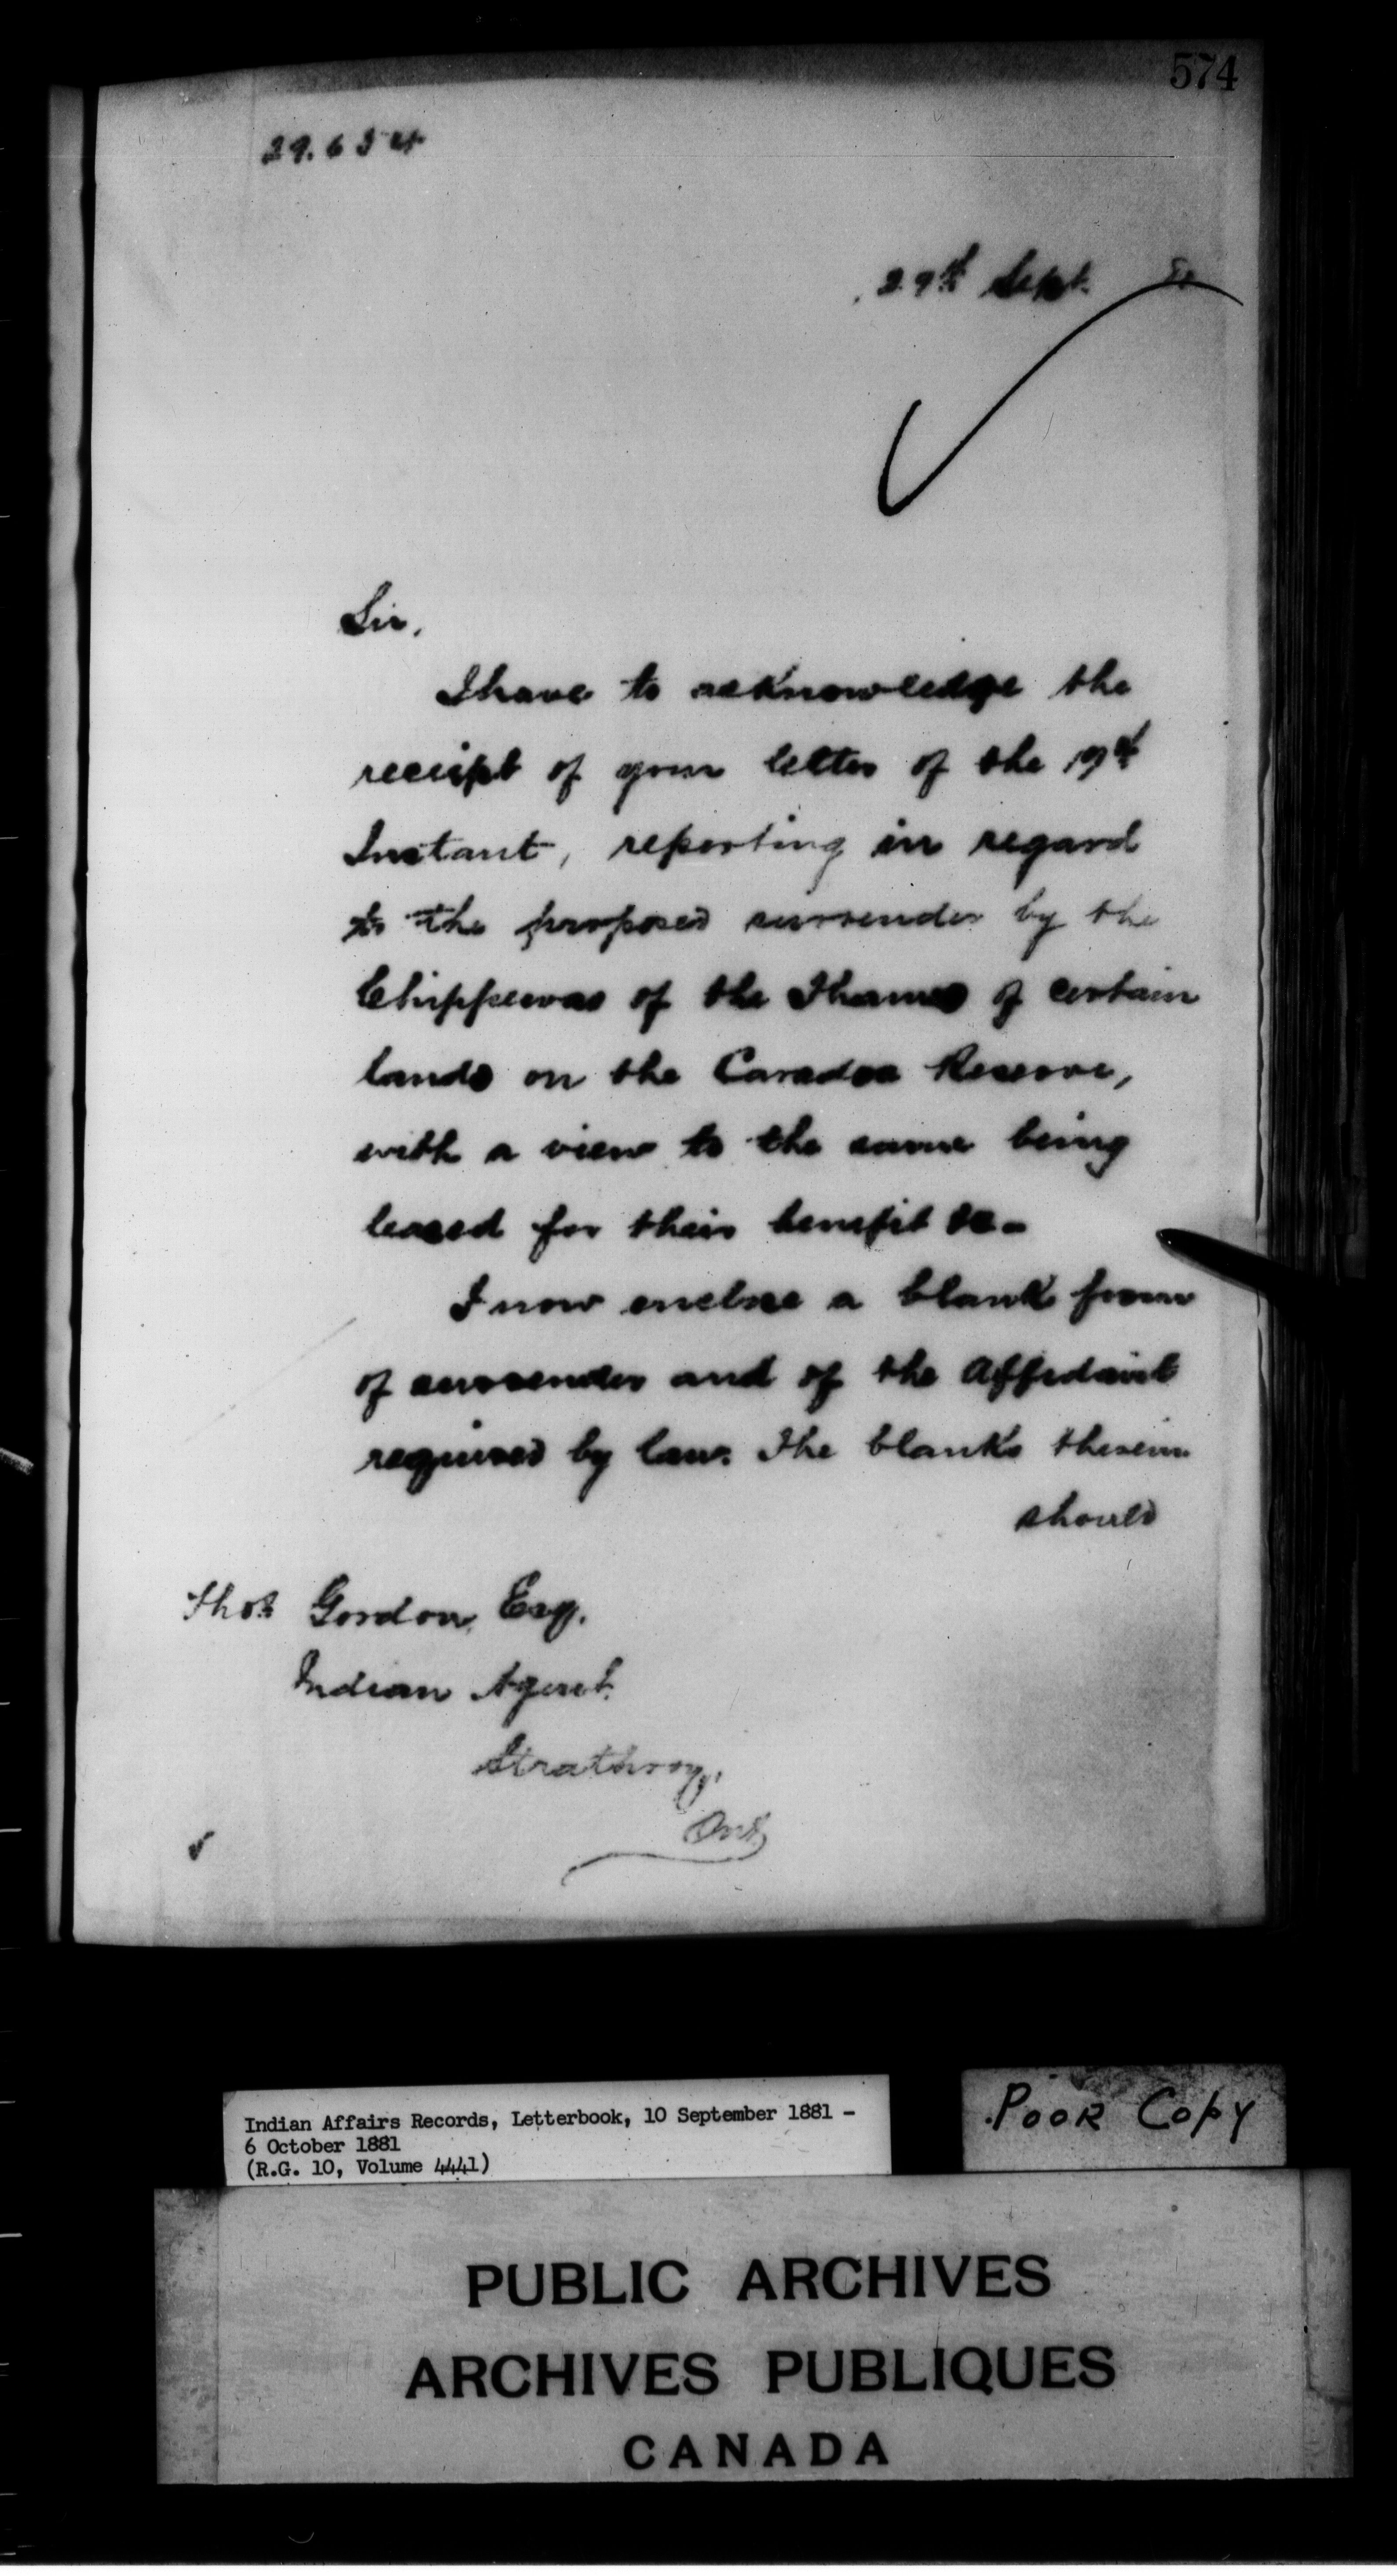 574
29.654
29th Sept. 81
Sir,
I have to acknowledge the
receipt of your letter of the 19th
Instant, reporting in regard
to the proposed surrender by the
Chippewas of the Thames of certain
lands on the Caradoc Reserve,
with a view to the same being
leased for their benefit &c-
I now enclose a blank form
of surrender and of the Affidavit
required by law. The blanks therein
should
Thos Gordon Esq.
Indian Agent.
Strathroy,
Ont
Indian Affairs Records, Letterbook, 10 September 1881 -
6 October 1881
(R.G. 10, Volume 4441)
Poor Copy
PUBLIC ARCHIVES
ARCHIVES PUBLIQUES
CANADA